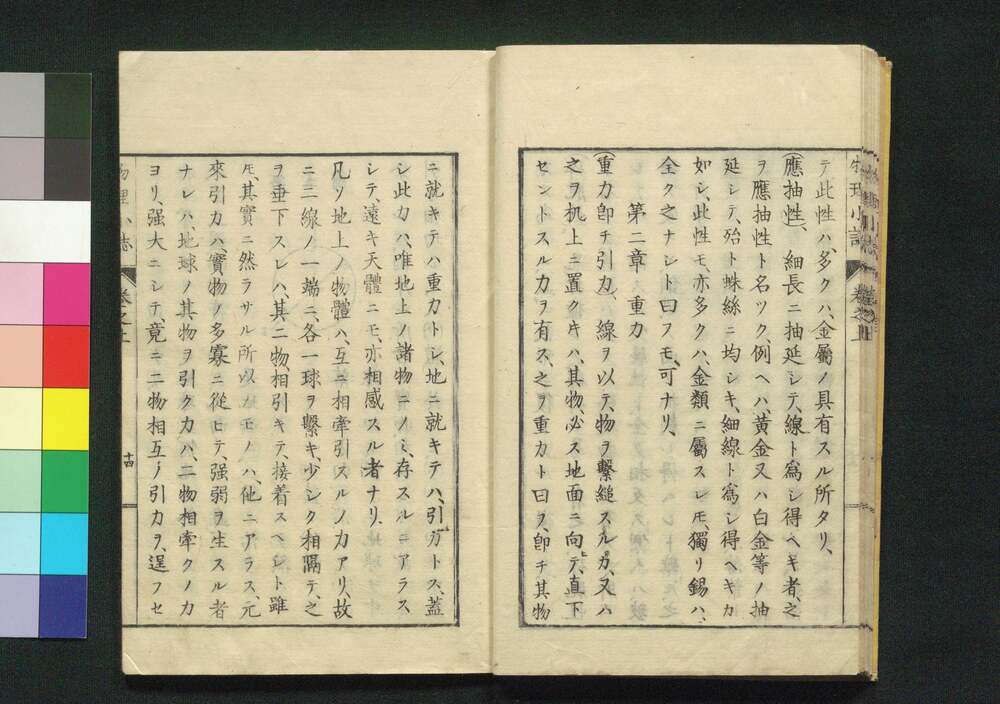 テ此性ハ、多クハ、金屬ノ具有スル所タリ、
(應抽性)、細長ニ抽延シテ、線ト爲シ得ヘキ者、之
ヲ應抽性ト名ツク、例ヘハ、黄金又ハ白金等ノ抽
延シテ、殆ト蛛絲ニ均シキ、細線ト爲シ得ヘキカ
如シ、此性モ、亦多クハ、金類ニ屬スレ𪜈、獨リ錫ハ、
全ク之ナシト曰フモ、可ナリ、
第二章 重力
(重力卽チ引力)、線ヲ以テ、物ヲ繫縋スルカ、又ハ
之ヲ机上ニ置ク𪜈ハ、其物、必ス地面ニ向テ、直下
セントスル力ヲ有ス、之ヲ重力ト曰ヲ、卽チ其物
ニ就キテハ重力トシ、地ニ就キテハ、引力トス、蓋
シ此力ハ、唯地上ノ諸物ニノミ、存スルニアラス
シテ、遠キ天體ニモ、亦相感スル者ナリ、
凡ソ地上ノ物體ハ、互ニ相牽引スルノ力アリ、故
ニ二線ノ一端ニ、各一球ヲ繫キ、少シク相隔テ、之
ヲ垂下スレハ、其二物、相引キテ、接着スヘシト雖
𪜈、其實ニ然ラサル所以ノモノハ、他ニアラス、元
來引力ハ、實物ノ多寡ニ從ヒテ、强弱ヲ生スル者
ナレハ、地球ノ其物ヲ引ク力ハ、二物相牽クノ力
ヨリ、强大ニシテ、竟ニ二物相互ノ引力ヲ、逞フセ
物理小誌 卷之上
十四